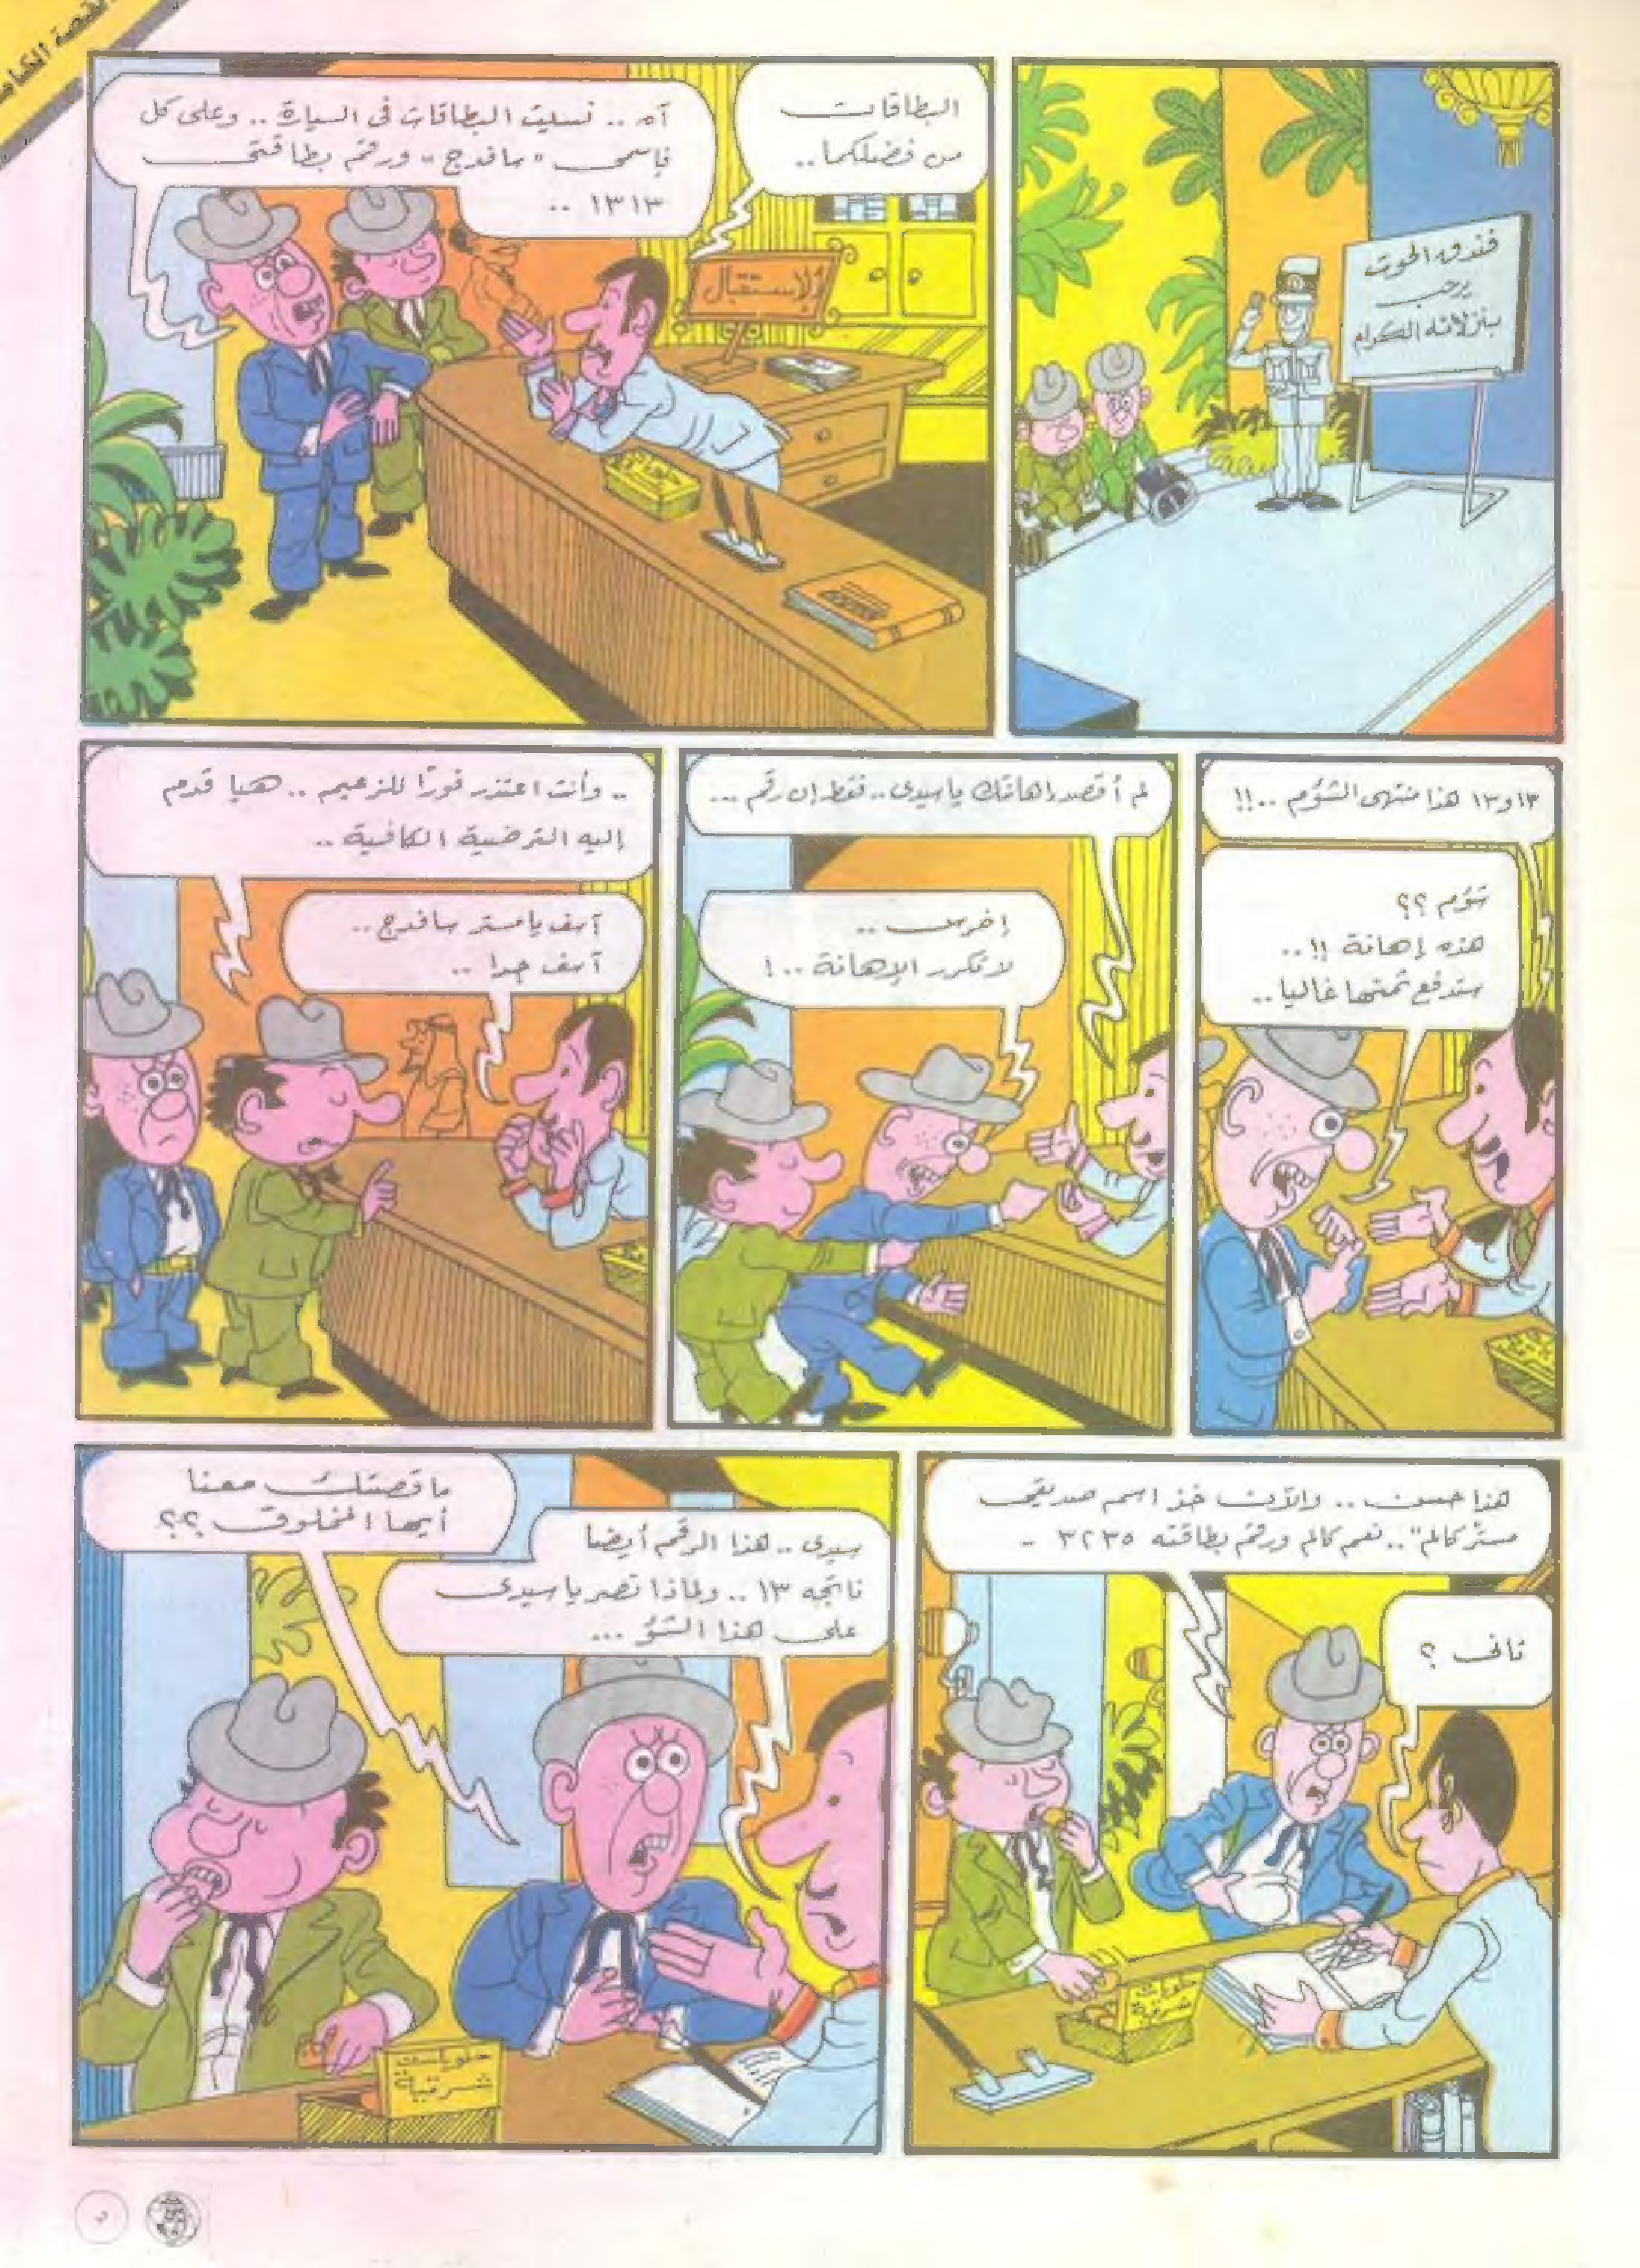 القصة الكاملة
فندق الحوت
يرحب
بنزلائه الكرام
البطاقات
من فضلكما ..
آه .. نسيت البطاقات فى السيارة .. وعلى كل
فإسمى "سافدج" ورقم بطاقتى
١٣١٣ ..
الاستقبال
١٣ و١٣ هذا منتهى الشؤم ..!!
شؤم ؟؟
هذه إهانة !! ..
ستدفع ثمنها غاليا ..
لم أقصد إهانتك يا سيدى .. فقط إن رقم ...
إخرس ..
لا تكرر الإهانة ..!
.. وأنت اعتذر فورًا للزعيم .. هيا قدم
إليه الترضية الكافية ..
آسف يا مستر سافدج ..
آسف جدا ..
هذا حسن .. والآن خذ اسم صديقى
مستر كالم" .. نعم كالم ورقم بطاقته ٣٢٣٥ ..
ثانى ؟
حلويات
شرقية
ما قصتك معنا
أيها المخلوق ؟؟
سيدى .. هذا الرقم أيضا
ناتجه ١٣ .. ولماذا تصر يا سيدى
على هذا الشؤ ...
حلويات
شرقية